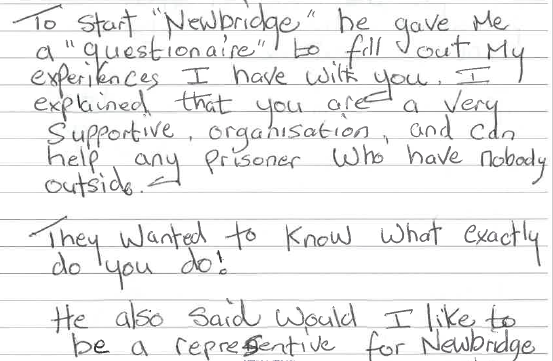 To start "Newbridge" he gave me
a "questionaire" to fill out My
experiences I have with you. I
explained that you are a very
Supportive, organisation, and can
help any prisoner who have nobody
outside.
They wanted to know what exactly
do you do!
He also said would I like to
be a representive for Newbridge